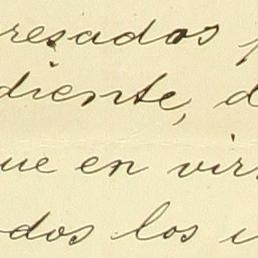 resados
diente, d
que en vir
dos los